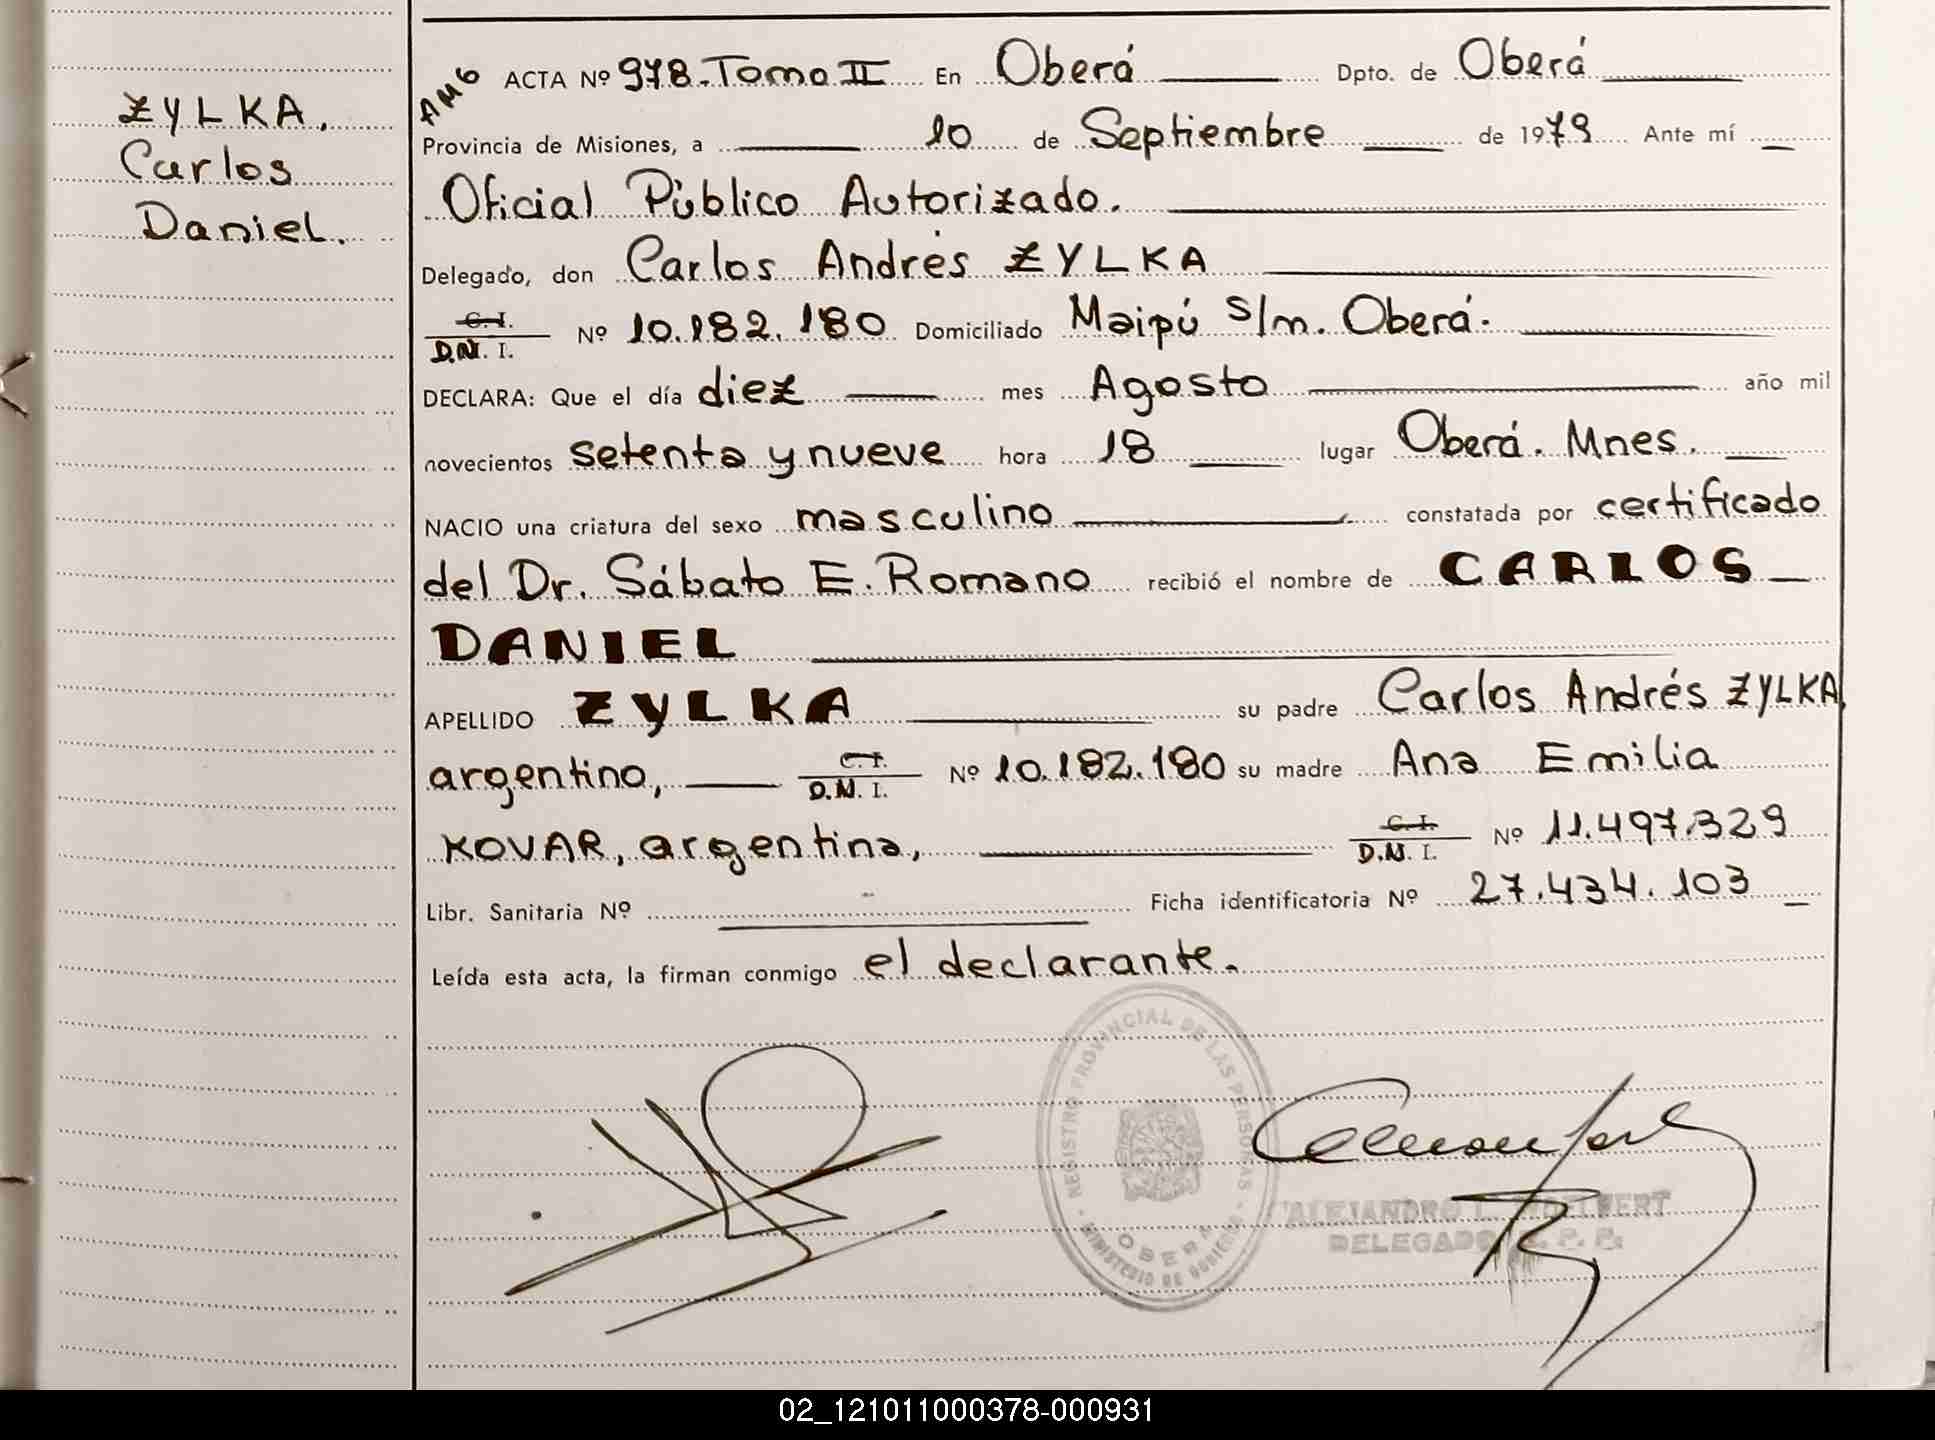 ZYLKA,
Carlos
Daniel.
AMG ACTA Nº 978. Tomo II En Oberá Dpto. de Oberá
Provincia de Misiones, a 10 de Septiembre de 1979 Ante mí
Oficial Público Autorizado.
Delegado, don Carlos Andrés ZYLKA
C. I. D.N. I. Nº 10.182.180 Domiciliado Maipú s/m. Oberá.
DECLARA: Que el día diez mes Agosto año mil
novecientos setenta y nueve hora 18 lugar Oberá. Mnes.
NACIO una criatura del sexo masculino constatada por certificado
del Dr. Sábato E. Romano recibió el nombre de CARLOS
DANIEL
APELLIDO ZYLKA su padre Carlos Andrés ZYLKA,
argentino, C. I. D.N. I. Nº 10.182.180 su madre Ana Emilia
KOVAR, argentina, C. I. D.N. I. Nº 11.497.329
Libr. Sanitaria Nº Ficha identificatoria Nº 27.434.103
Leída esta acta, la firman conmigo el declarante.
REGISTRO PROVINCIAL DE LAS PERSONAS
OBERA
MINISTERIO DE GOBIERNO
ALEJANDRO L.
DELEGADO R. P. P.
02_121011000378-000931